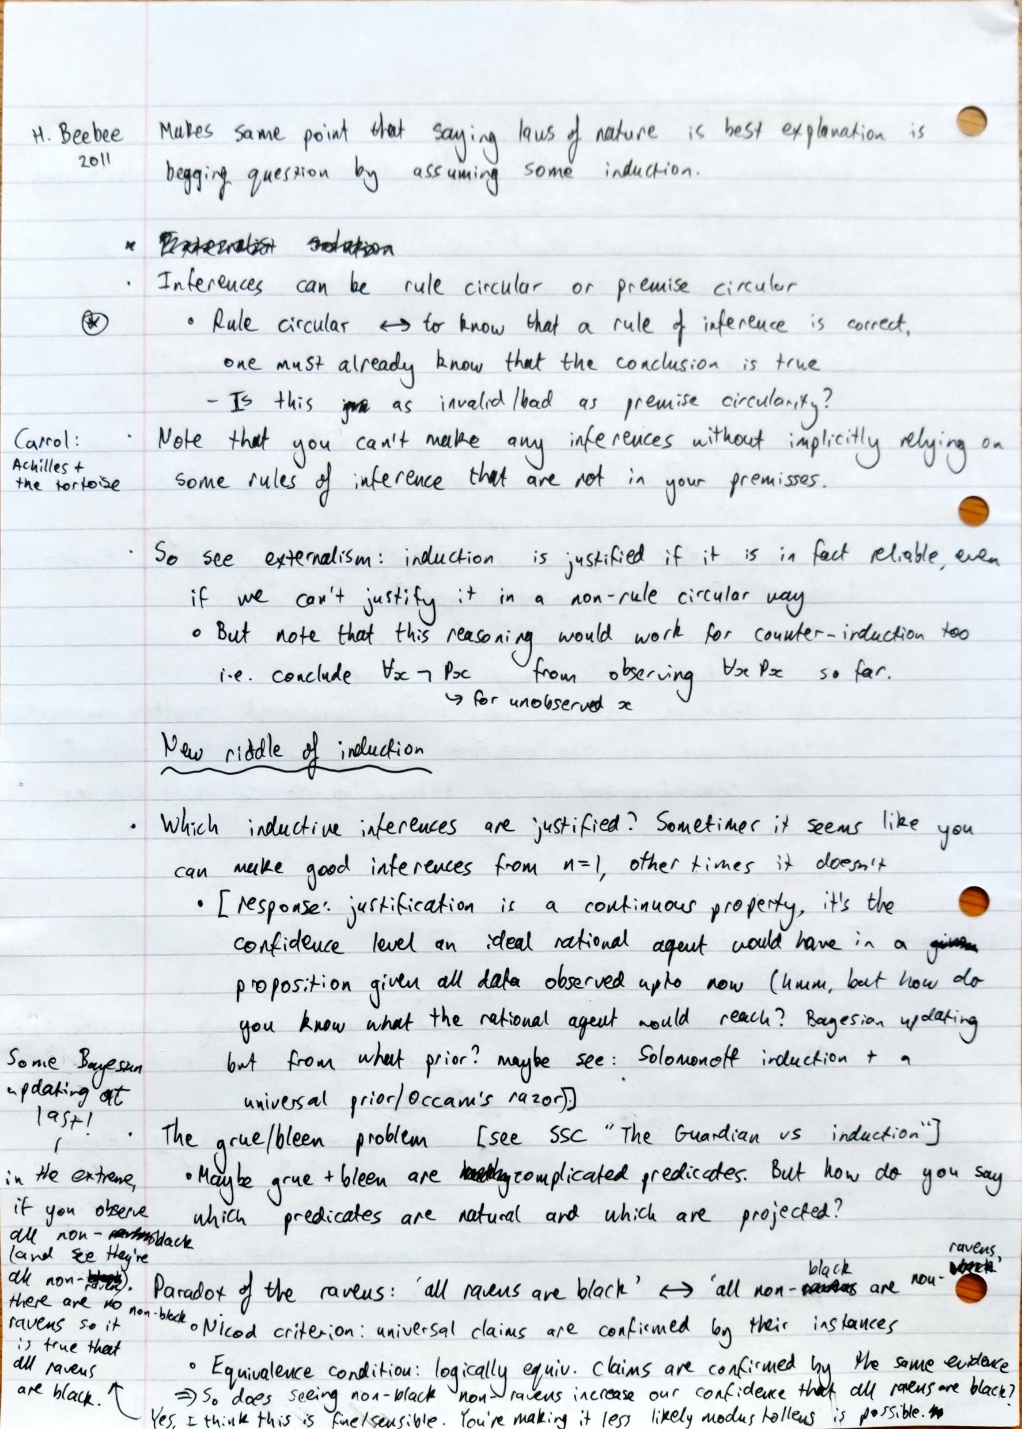 H. Beebee
2011
Makes same point that saying laws of nature is best explanation is
begging question by assuming some induction.
* Externalist solution
· Inferences can be rule circular or premise circular
• Rule circular ↔ to know that a rule of inference is correct,
one must already know that the conclusion is true
- Is this as invalid/bad as premise circularity?
Carrol:
Achilles +
the tortoise
· Note that you can't make any inferences without implicitly relying on
some rules of inference that are not in your premisses.
· So see externalism: induction is justified if it is in fact reliable, even
if we can't justify it in a non-rule circular way
• But note that this reasoning would work for counter-induction too
i.e. conclude ∀x ¬ Px from observing ∀x Px so far.
↳ for unobserved x
New riddle of induction
· Which inductive inferences are justified? Sometimes it seems like you
can make good inferences from n=1, other times it doesn't
• [response: justification is a continuous property, it's the
confidence level an ideal rational agent would have in a given
proposition given all data observed upto now (hmm, but how do
you know what the rational agent would reach? Bayesian updating
but from what prior? maybe see: Solomonoff induction + a
universal prior/Occam's razor)]
· The grue/bleen problem [see SSC "The Guardian vs induction"]
• Maybe grue + bleen are complicated predicates. But how do you say
which predicates are natural and which are projected?
Some Bayesian
updating at
last!
in the extreme,
if you observe
all non-black
(and see they're
all non-raven).
there are no non-black
ravens so it
is true that
all ravens
are black.
Paradox of the ravens: 'all ravens are black' ↔ 'all non-black are non-ravens'
• Nicod criterion: universal claims are confirmed by their instances
• Equivalence condition: logically equiv. claims are confirmed by the same evidence
⇒ So does seeing non-black non-ravens increase our confidence that all ravens are black?
Yes, I think this is fine/sensible. You're making it less likely modus tollens is possible.